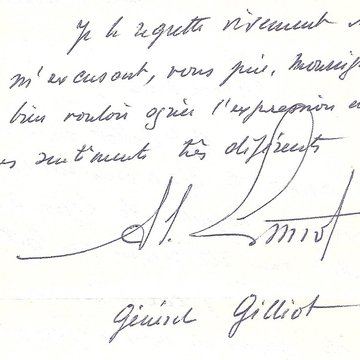 Je le regrette vivement
m'excusant, vous prie, Monsieur
bien vouloir agréer l'expression
sentiments très déférents
Général Gilliot